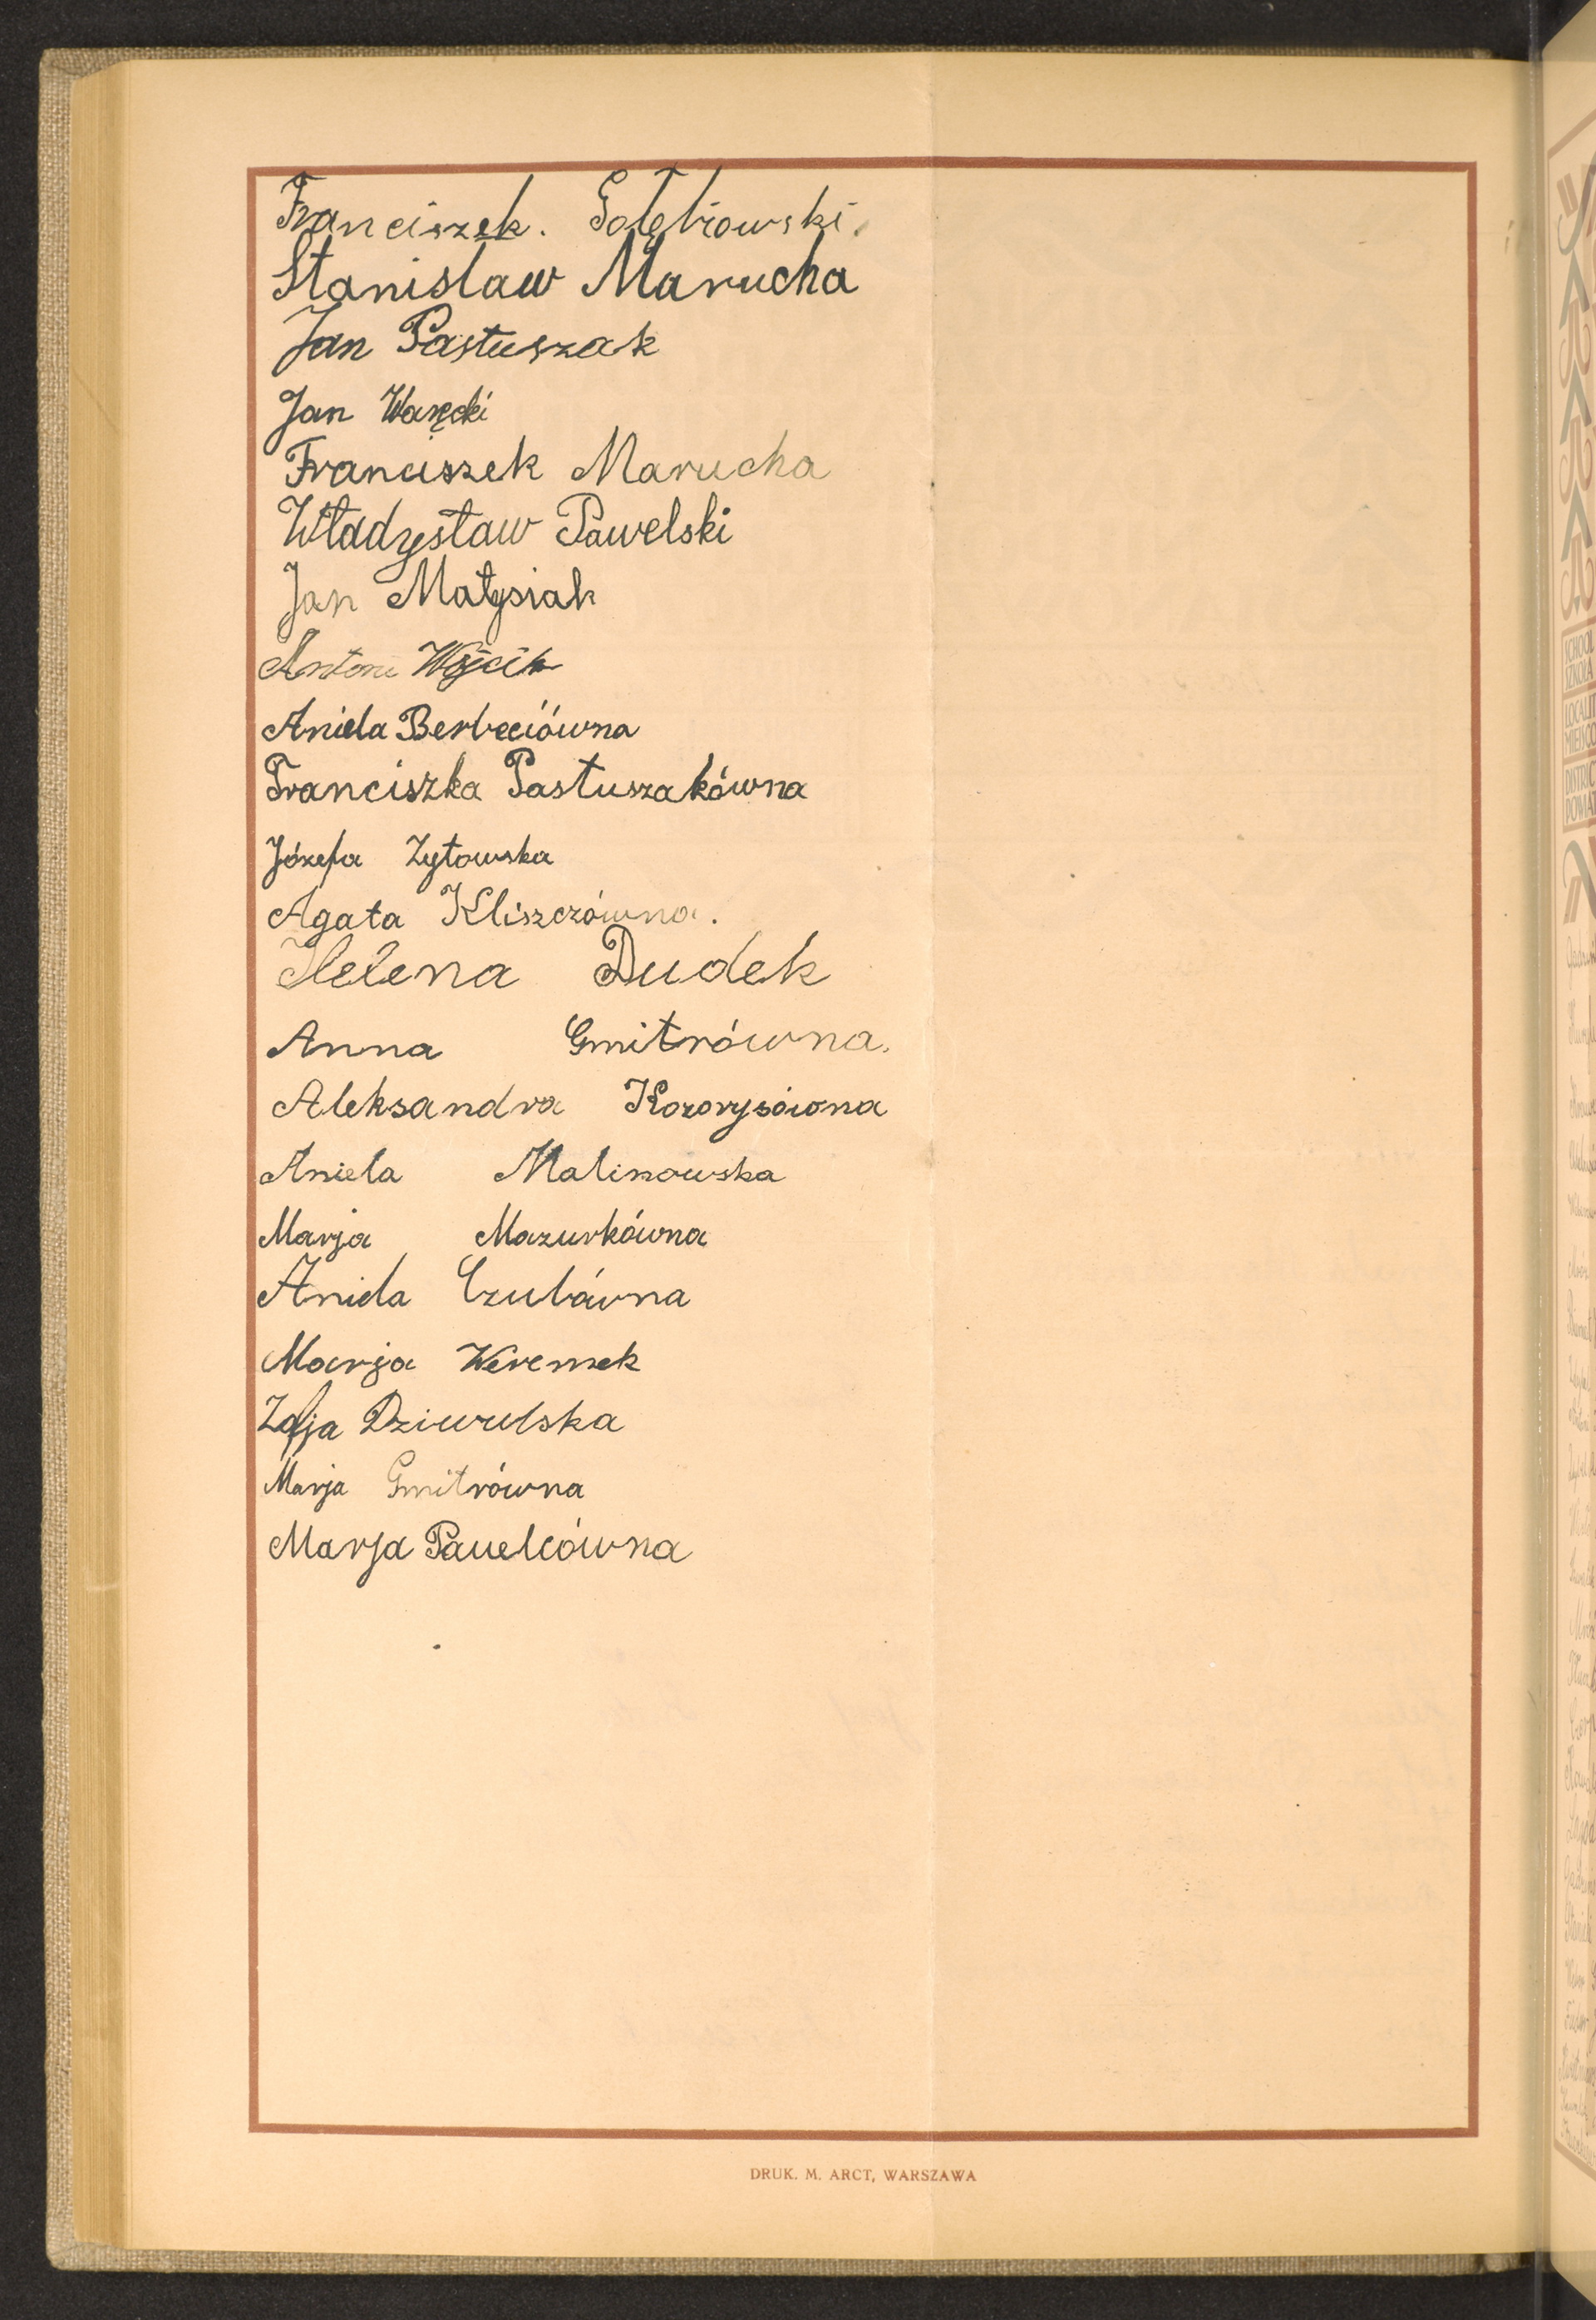 Franciszek. Gołębiowski.
Stanisław Marucha
Jan Pastuszak
Jan Waręcki
Franciszek Marucha
Władysław Pawelski
Jan Matysiak
Antoni Wójcik
Aniela Berbeciówna
Franciszka Pastuszakówna
Józefa Zytowska
Agata Kliszczówna.
Helena Dudek
Anna Gmitrówna.
Aleksandra Kozorysówna
Aniela Malinowska
Marja Mazurkówna
Aniela Czubówna
Marja Weremek
Zofja Dziwulska
Marja Gmitrówna
Marja Pawelcówna
DRUK. M. ARCT, WARSZAWA